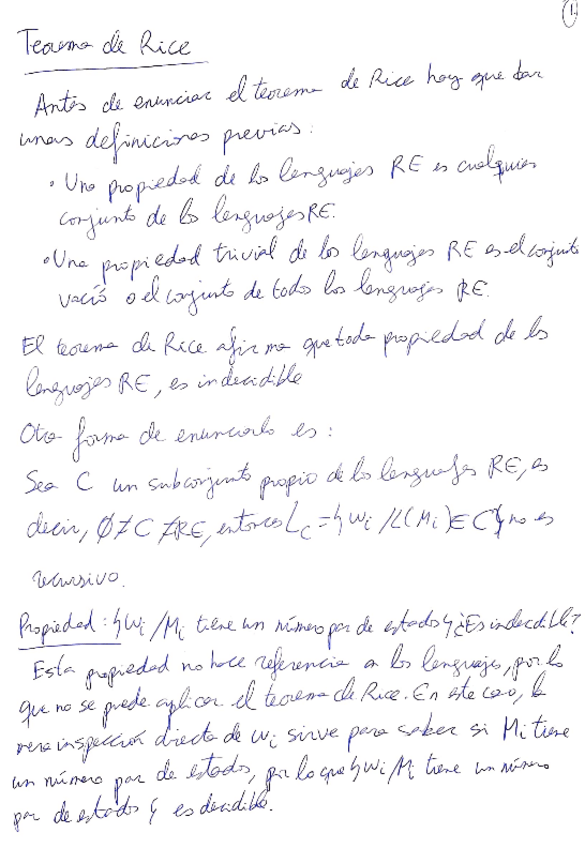 1.
Teorema de Rice
Antes de enunciar el teorema de Rice hay que dar
unas definiciones previas:
• Una propiedad de los lenguajes RE es cualquier
conjunto de los lenguajes RE.
• Una propiedad trivial de los lenguajes RE es el conjunto
vació o el conjunto de todos los lenguajes RE.
El teorema de Rice afirma que toda propiedad de los
lenguajes RE, es indecidible
Otra forma de enunciarlo es:
Sea C un subconjunto propio de los lenguajes RE, es
decir, ∅≠C≠RE, entonces L_C = {w_i / L(M_i) ∈ C} no es
recursivo.
Propiedad: {w_i / M_i tiene un número par de estados} ¿Es indecidible?
Esta propiedad no hace referencia a los lenguajes, por lo
que no se puede aplicar el teorema de Rice. En este caso, la
mera inspección directa de w_i sirve para saber si M_i tiene
un número par de estados, por lo que {w_i / M_i tiene un número
par de estados} es decidible.